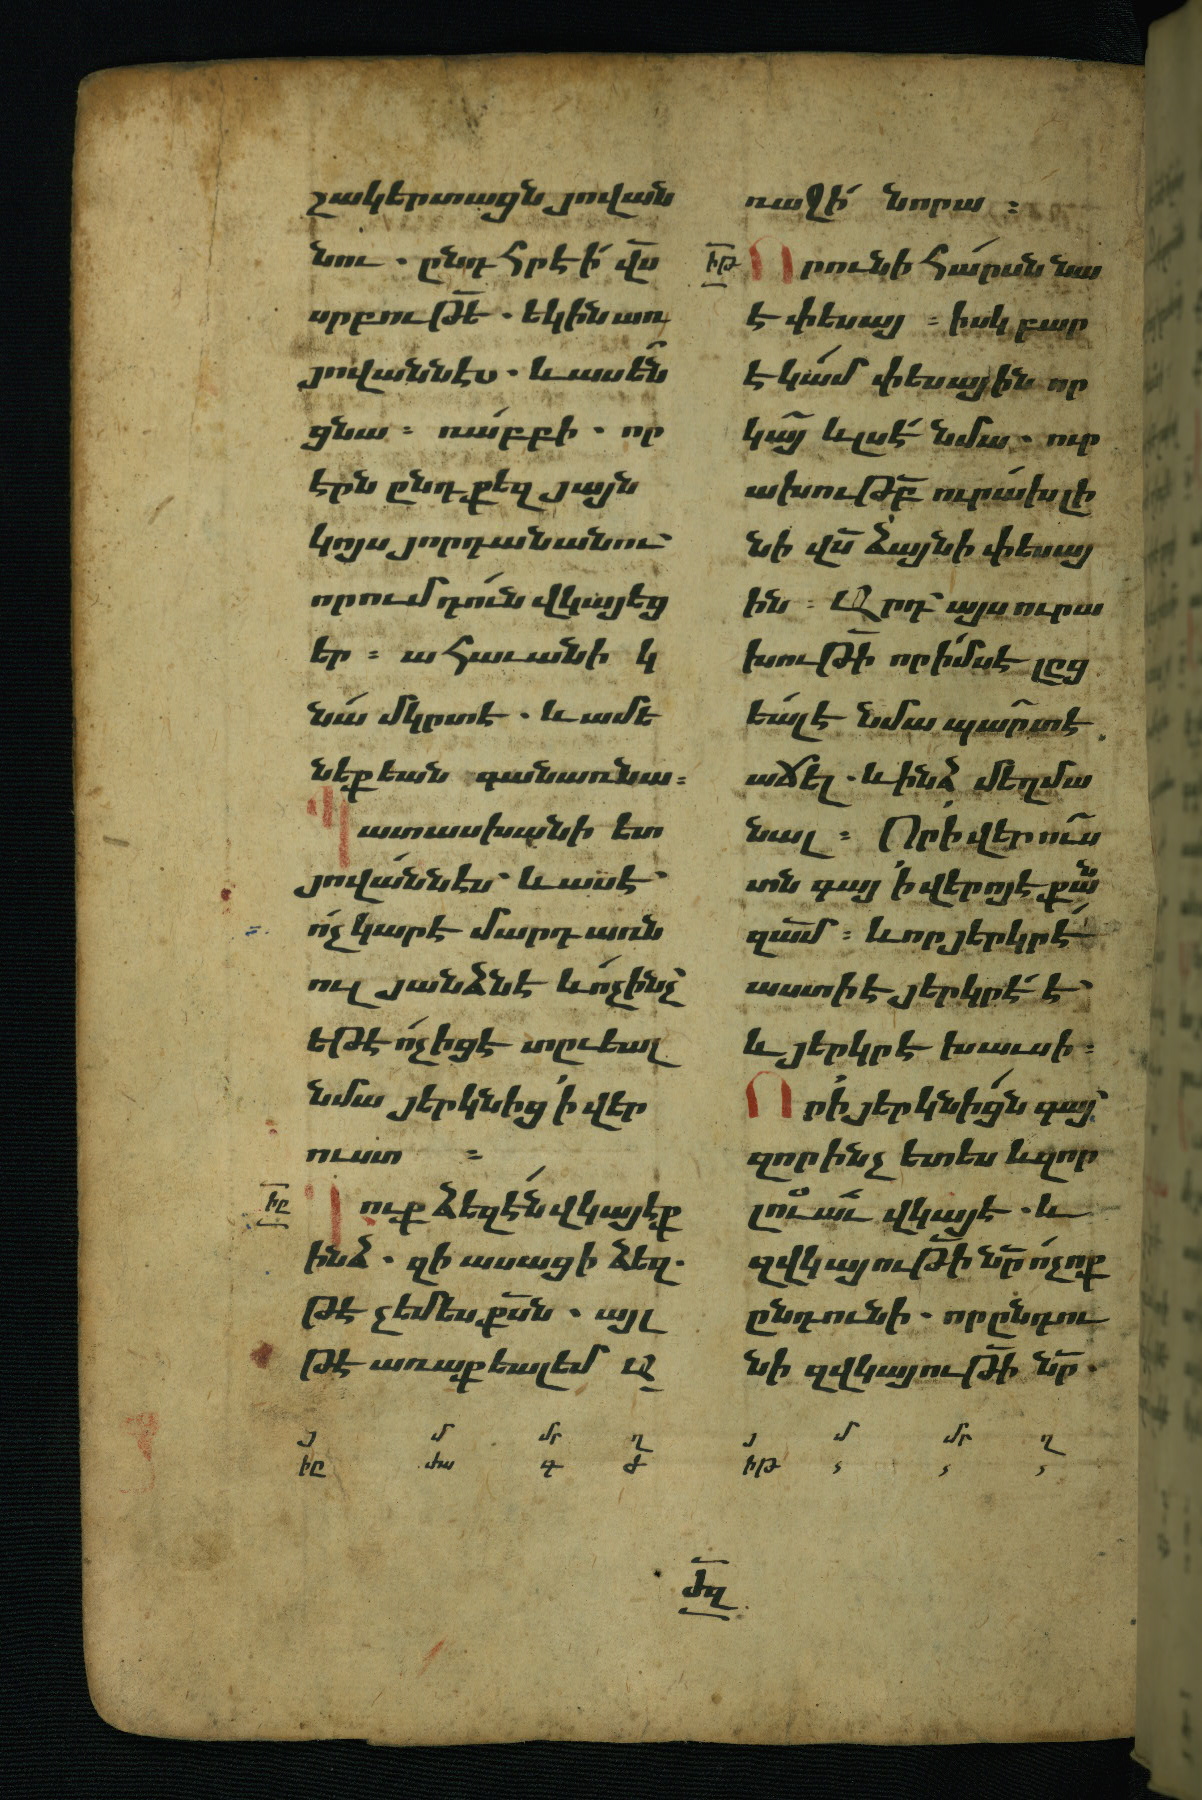 շակերտացն յովան
նու . ընդ հրէի վս
սրբութե . եկին առ
յովաննէս . և ասեն
ցնա : ռաբբի . որ
էրն ընդ քեզ յայն
կոյս յորդանանու
որում դուն վկայեց
եր : ահաւանի կ
նա մկրտէ . և ամե
նեքեան գան առ նա :
Պատասխանի ետ
յովաննէս և ասէ
ոչ կարէ մարդ առն
ուլ յանձնէ և ոչինչ
եթէ ոչ իցէ տըւեալ
նմա յերկնից ի վեր
ուստ :
իը
Դուք ձեզէն վկայէք
ինձ . զի ասացի ձեզ .
թէ չեմ ես քսն . այլ
թէ առաքեալ եմ Ա
ռաջի նորա :
իթ
Որ ունի հարսն նա
է փեսայ : իսկ բար
եկամ փեսային որ
կայ և լսէ նմա . ուր
ախութբ ուրախ լի
նի վս ձայնի փեսայ
ին : Արդ այս ուրա
խութի որ իմս է լըց
եալ է նմա պարտ է
աճել . և ինձ մեղմա
նալ : Որ ի վերուս
տն գայ ի վերոյ է քն
զամ : և որ յերկրէ
աստի է յերկրէ է
և յերկրէ խաւսի :
Որ ի յերկնիցն գայ
զոր ինչ ետես և զոր
լուաւ վկայէ . և
զվկայութի նր ոչ ոք
ընդունի . որ ընդու
նի զվկայութի նր .
յ մ մր ղ յ մ մր ղ
իը փա գ ժ իթ
մղ